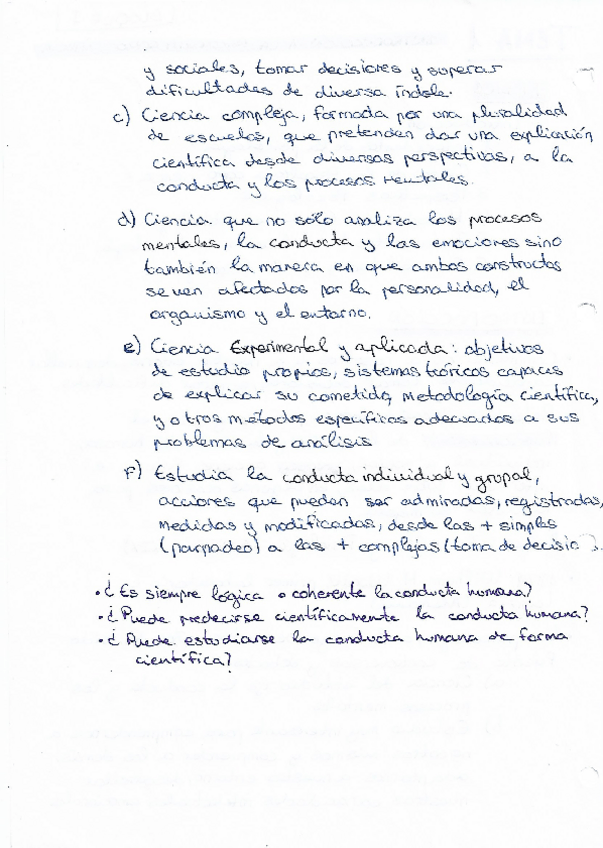 y sociales, tomar decisiones y superar
dificultades de diversa índole.
c) Ciencia compleja, formada por una pluralidad
de escuelas, que pretenden dar una explicación
científica desde diversas perspectivas, a la
conducta y los procesos mentales.
d) Ciencia que no sólo analiza los procesos
mentales, la conducta y las emociones sino
también la manera en que ambos constructos
se ven afectados por la personalidad, el
organismo y el entorno.
e) Ciencia Experimental y aplicada: objetivos
de estudio propios, sistemas teóricos capaces
de explicar su cometido, metodología científica,
y otros métodos específicos adecuados a sus
problemas de análisis
F) Estudia la conducta individual y grupal,
acciones que pueden ser admiradas, registradas,
medidas y modificadas, desde las + simples
(parpadeo) a las + complejas (toma de decisio
• ¿Es siempre lógica o coherente la conducta humana?
• ¿Puede predecirse científicamente la conducta humana?
• ¿Puede estudiarse la conducta humana de forma
científica?